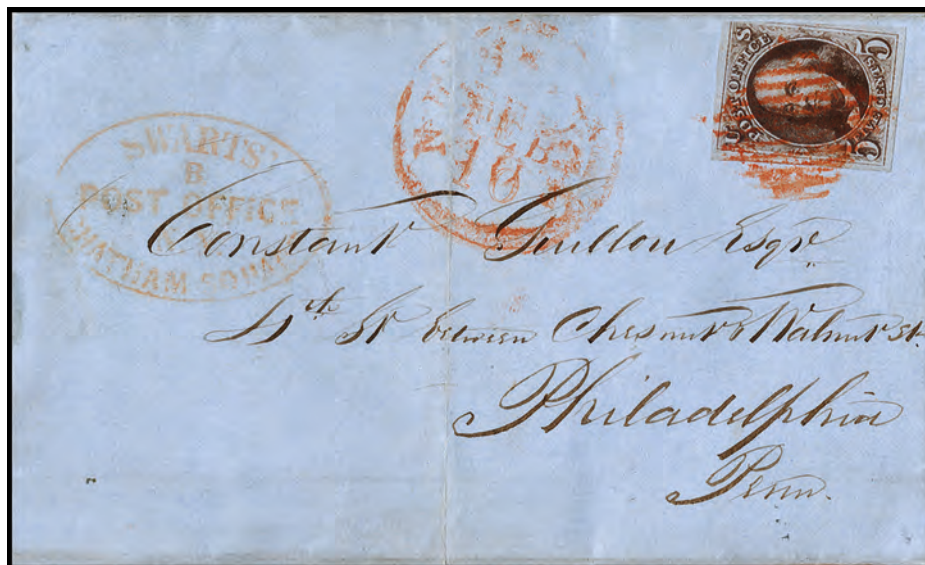 SWARTS'
B
POST OFFICE
CHATHAM SQUARE
NEW-YORK
FEB
10
U S
POST OFFICE
FIVE CENTS
5 5
Constant Guillou Esqre
4th St between Chesnut & Walnut St.
Philadelphia
Penn.